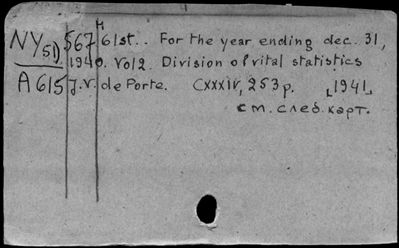 NY5D 567 H 61st.. For the year ending dec. 31,
1940. Vol2. Division of vital statistics
A615 J.V. de Porte. CXXXIV, 253 p. [1941]
см. след. карт.